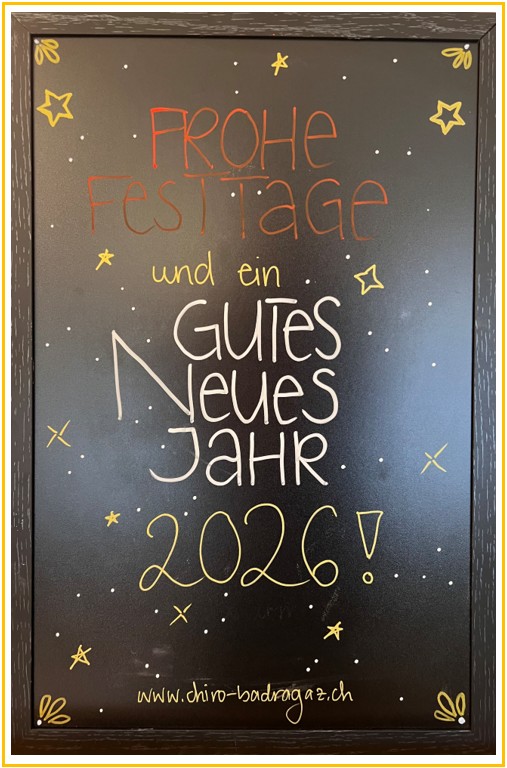 FROHE
FESTTAGE
und ein
GUTES
NEUES
JAHR
2026!
www.chiro-badragaz.ch